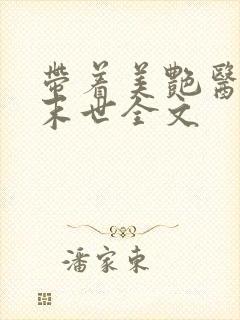 帶着美艷醫
末世全文
潘家東